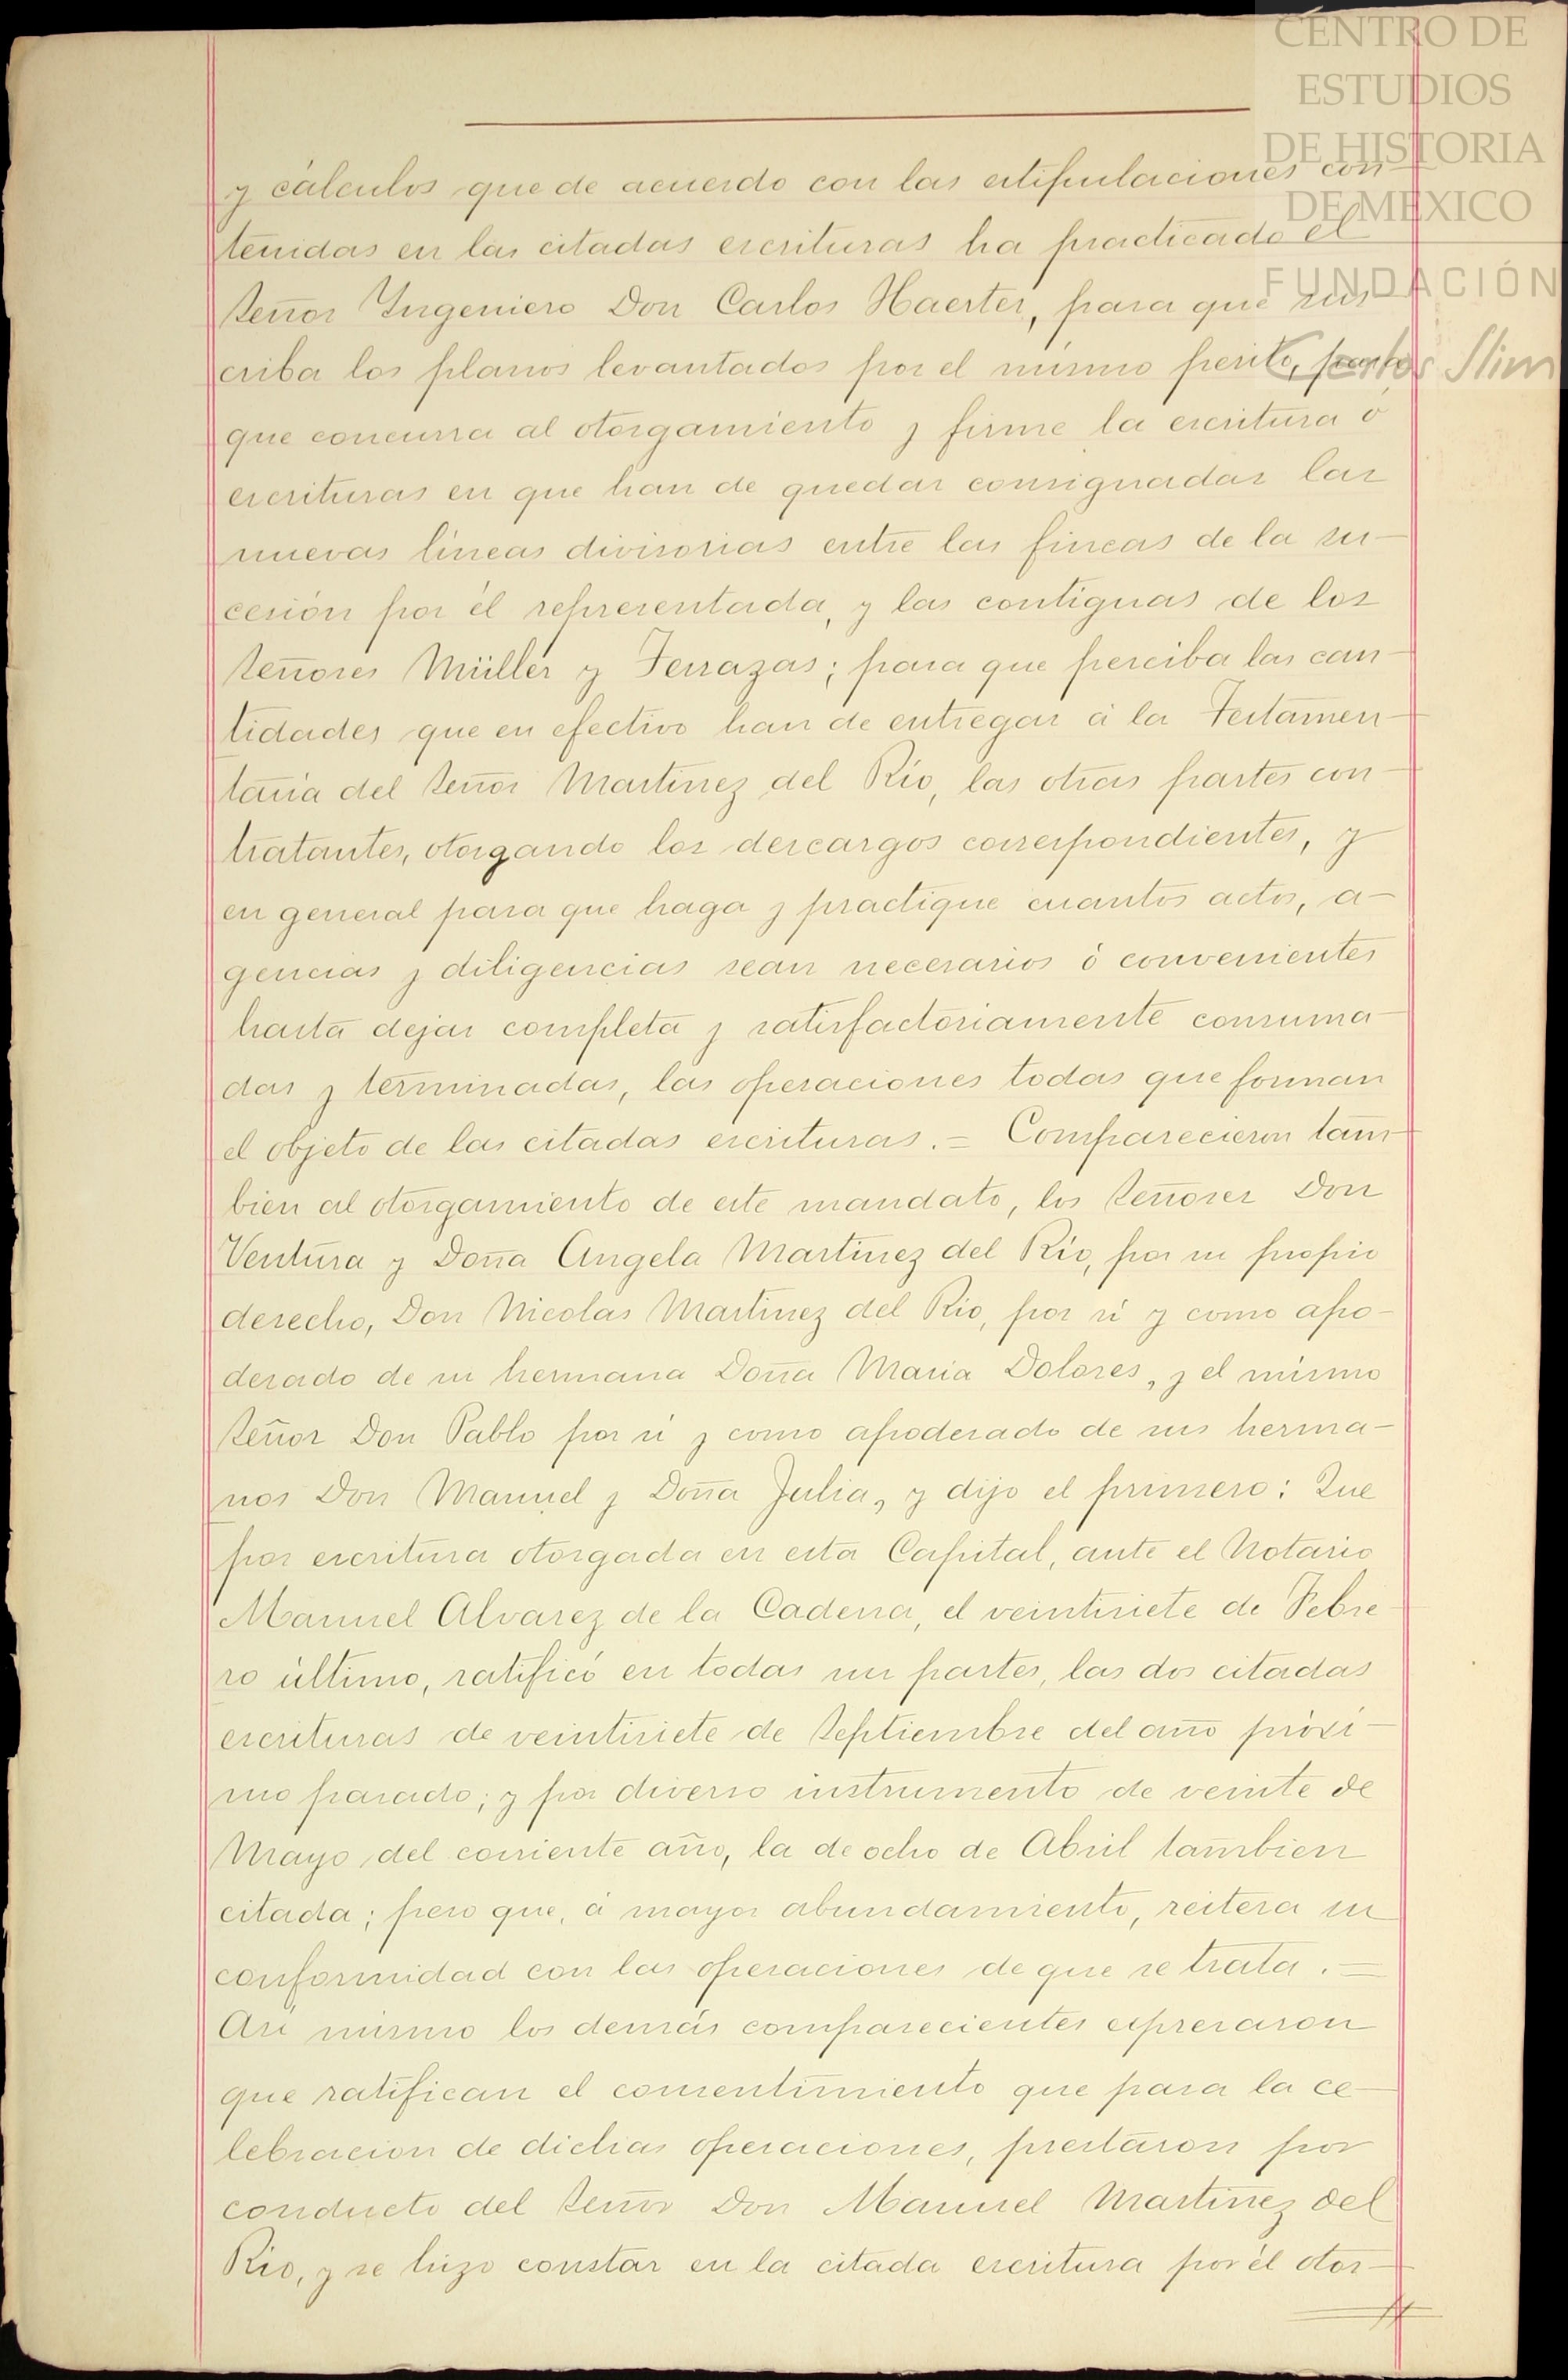 CENTRO DE
ESTUDIOS
DE HISTORIA
DE MEXICO
FUNDACIÓN
Carlos Slim
y cálculos que de acuerdo con las estipulaciones con-
tenidas en las citadas escrituras ha practicado el
Señor Yngeniero Don Carlos Haerter, para que sus-
criba los planos levantados por el mismo perito, para
que concurra al otorgamiento y firme la escritura ó
escrituras en que han de quedar consignadas las
nuevas líneas divisorias entre las fincas de la su-
cesión por él representada, y las contiguas de los
Señores Müller y Terrazas; para que perciba las can-
tidades que en efectivo han de entregar á la Testamen-
taría del Señor Martinez del Río, las otras partes con-
tratantes, otorgando los descargos correspondientes, y
en general para que haga y practique cuantos actos, a-
gencias y diligencias sean necesarios ó convenientes
hasta dejar completa y satisfactoriamente consuma-
das y terminadas, las operaciones todas que forman
el objeto de las citadas escrituras.= Comparecieron tam-
bien al otorgamiento de este mandato, los Señores Don
Ventura y Doña Angela Martinez del Río, por su propio
derecho, Don Nicolas Martinez del Rio, por sí y como apo-
derado de su hermana Doña Maria Dolores, y el mismo
Señor Don Pablo por sí y como apoderado de sus herma-
nos Don Manuel y Doña Julia, y dijo el primero: Que
por escritura otorgada en esta Capital, ante el Notario
Manuel Alvarez de la Cadena, el veintisiete de Febre-
ro último, ratificó en todas sus partes, las dos citadas
escrituras de veintisiete de Septiembre del año próxi-
mo pasado; y por diverso instrumento de veinte de
Mayo del corriente año, la de ocho de Abril tambien
citada; pero que, á mayor abundamiento, reitera su
conformidad con las operaciones de que se trata.=
Así mismo los demás comparecientes expresaron
que ratifican el consentimiento que para la ce-
lebracion de dichas operaciones, prestaron por
conducto del Señor Don Manuel Martinez del
Rio, y se hizo constar en la citada escritura por él otor-